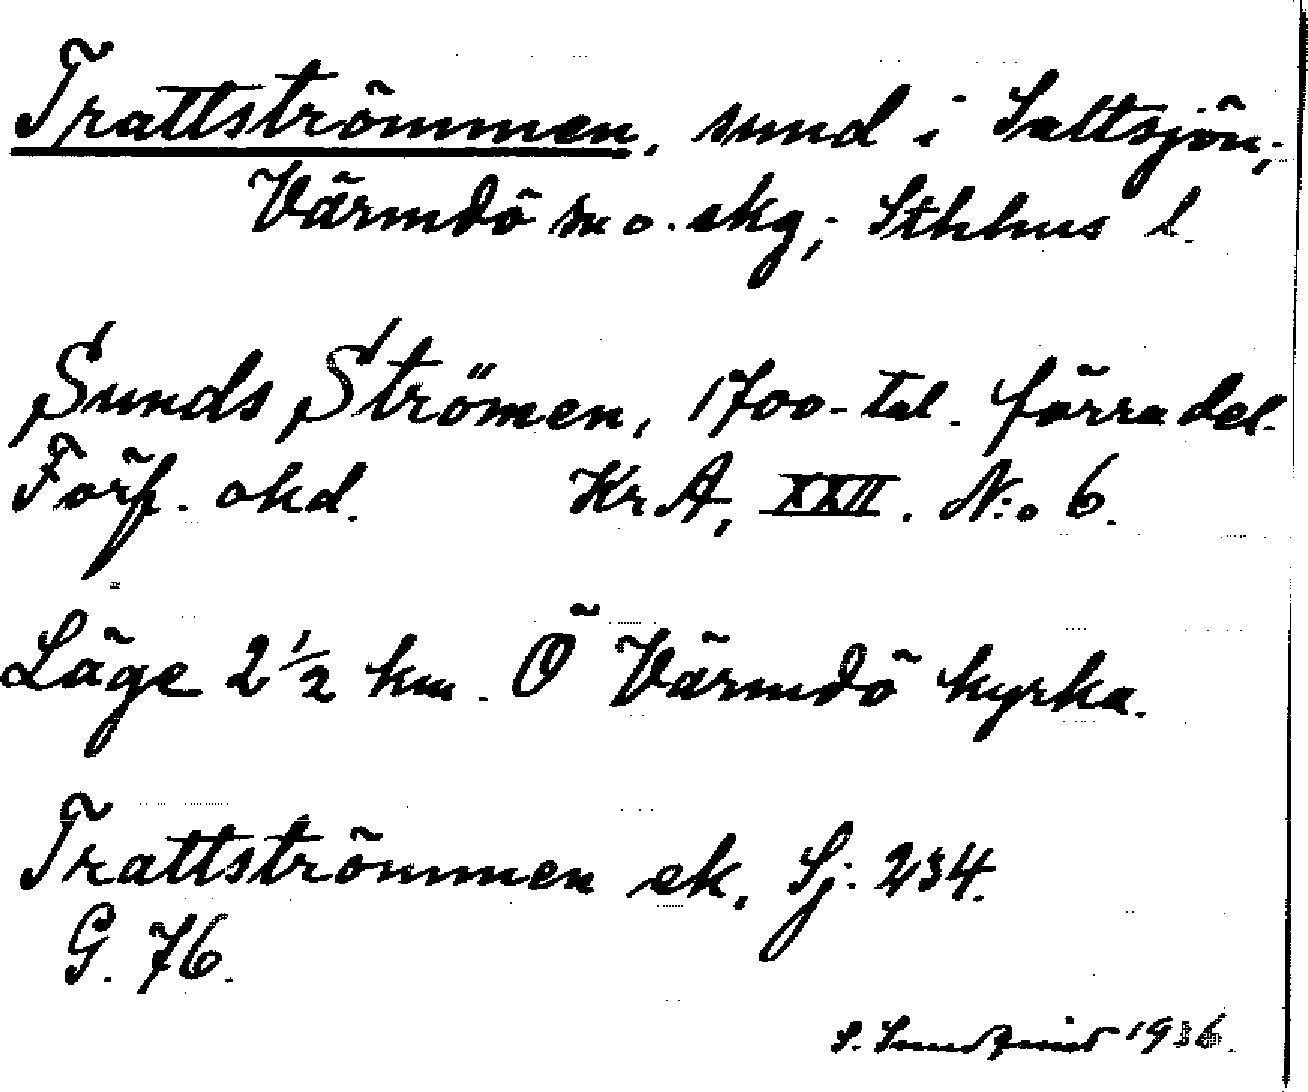 Trattströmmen, sund i Saltsjön;
Värmdö sn o. skg; Sthhus l.
Sunds Strömen, 1700-tal. förra del.
Förf. okd. KrA, XXII. N:o 6.
Läge 2 1/2 km. Ö Värmdö kyrka.
Trattströmmen ek, Sj. 234.
G. 76.
S. 1936.